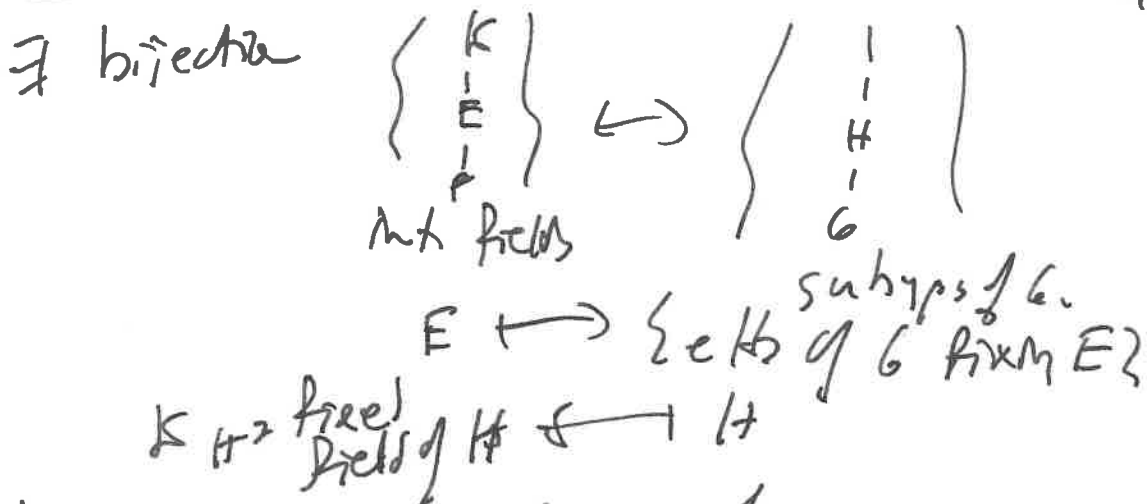 ∃ bijection { K | E | F } ↔ { 1 | H | G }
int fields
subgps of G.
E ⟼ {elts of G fixing E}
K_H = fixed field of H ⟻ H